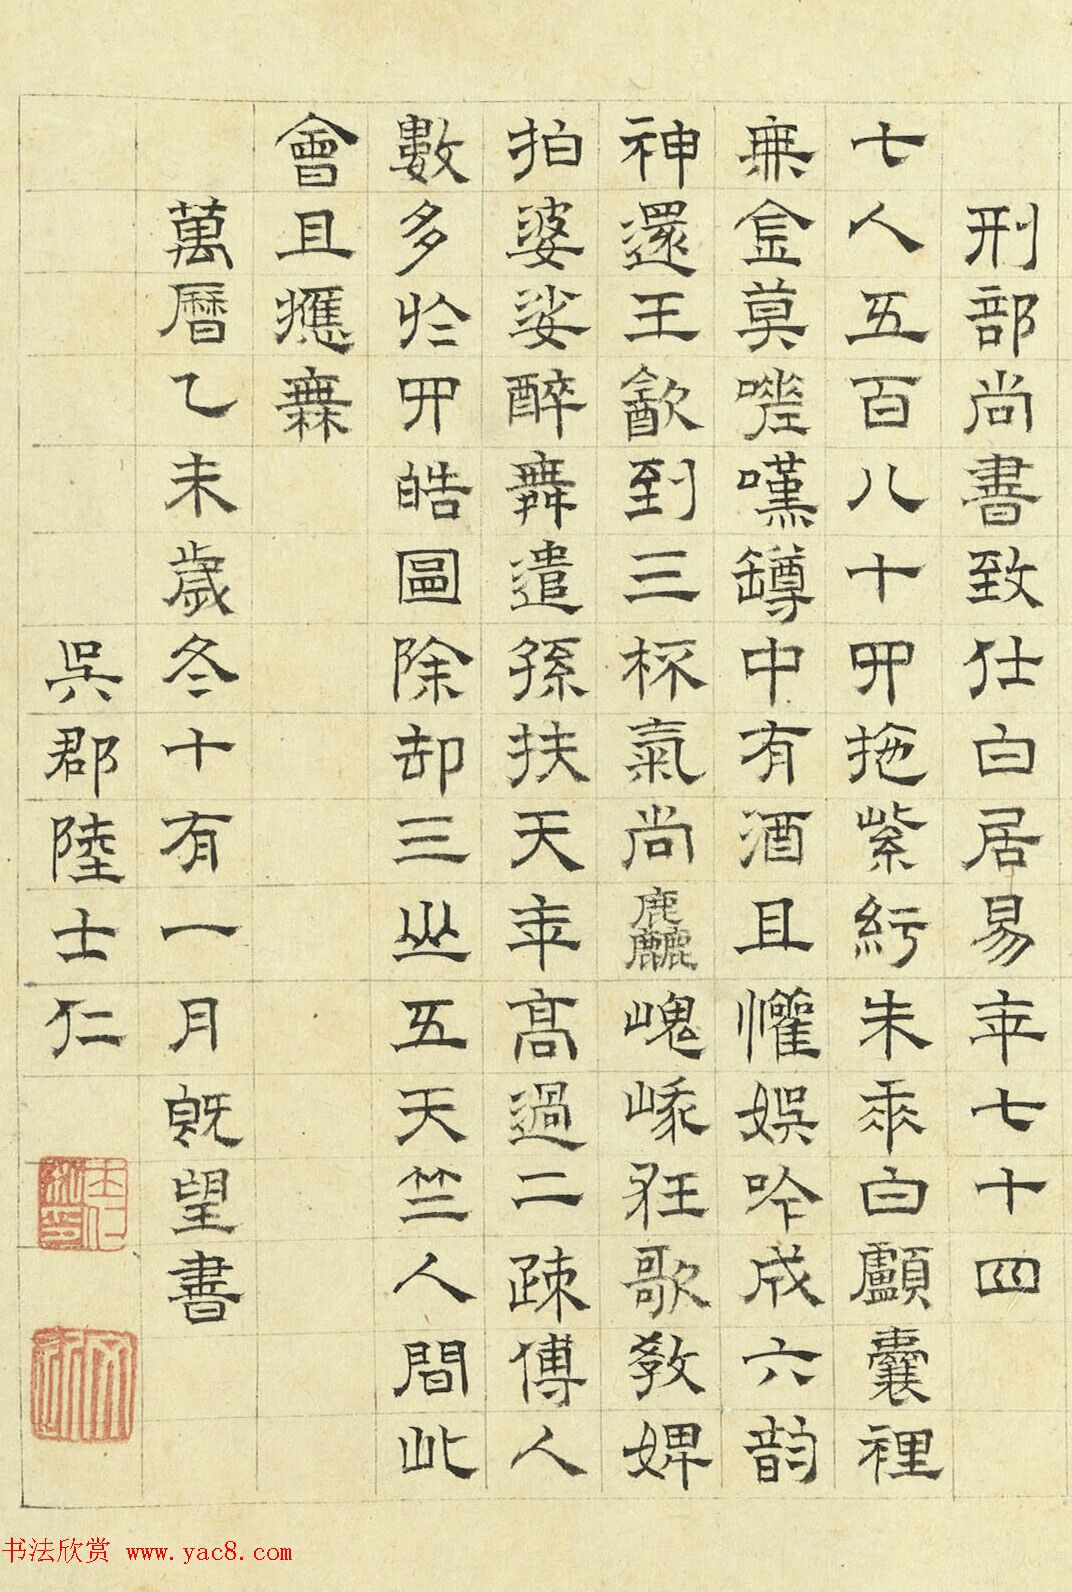 刑部尚書致仕白居易年七十四
七人五百八十四拖紫紆朱垂白顱囊裡
無金莫嗟嘆罇中有酒且懽娛吟成六韵
神還王㱃到三杯氣尚麤嵬峩狂歌教婢
拍婆娑醉舞遣孫扶天年高過二疎傅人
數多於四皓圖除却三山五天竺人間此
會且應無
萬曆乙未歲冬十有一月既望書
吳郡陸士仁
书法欣赏 www.yac8.com